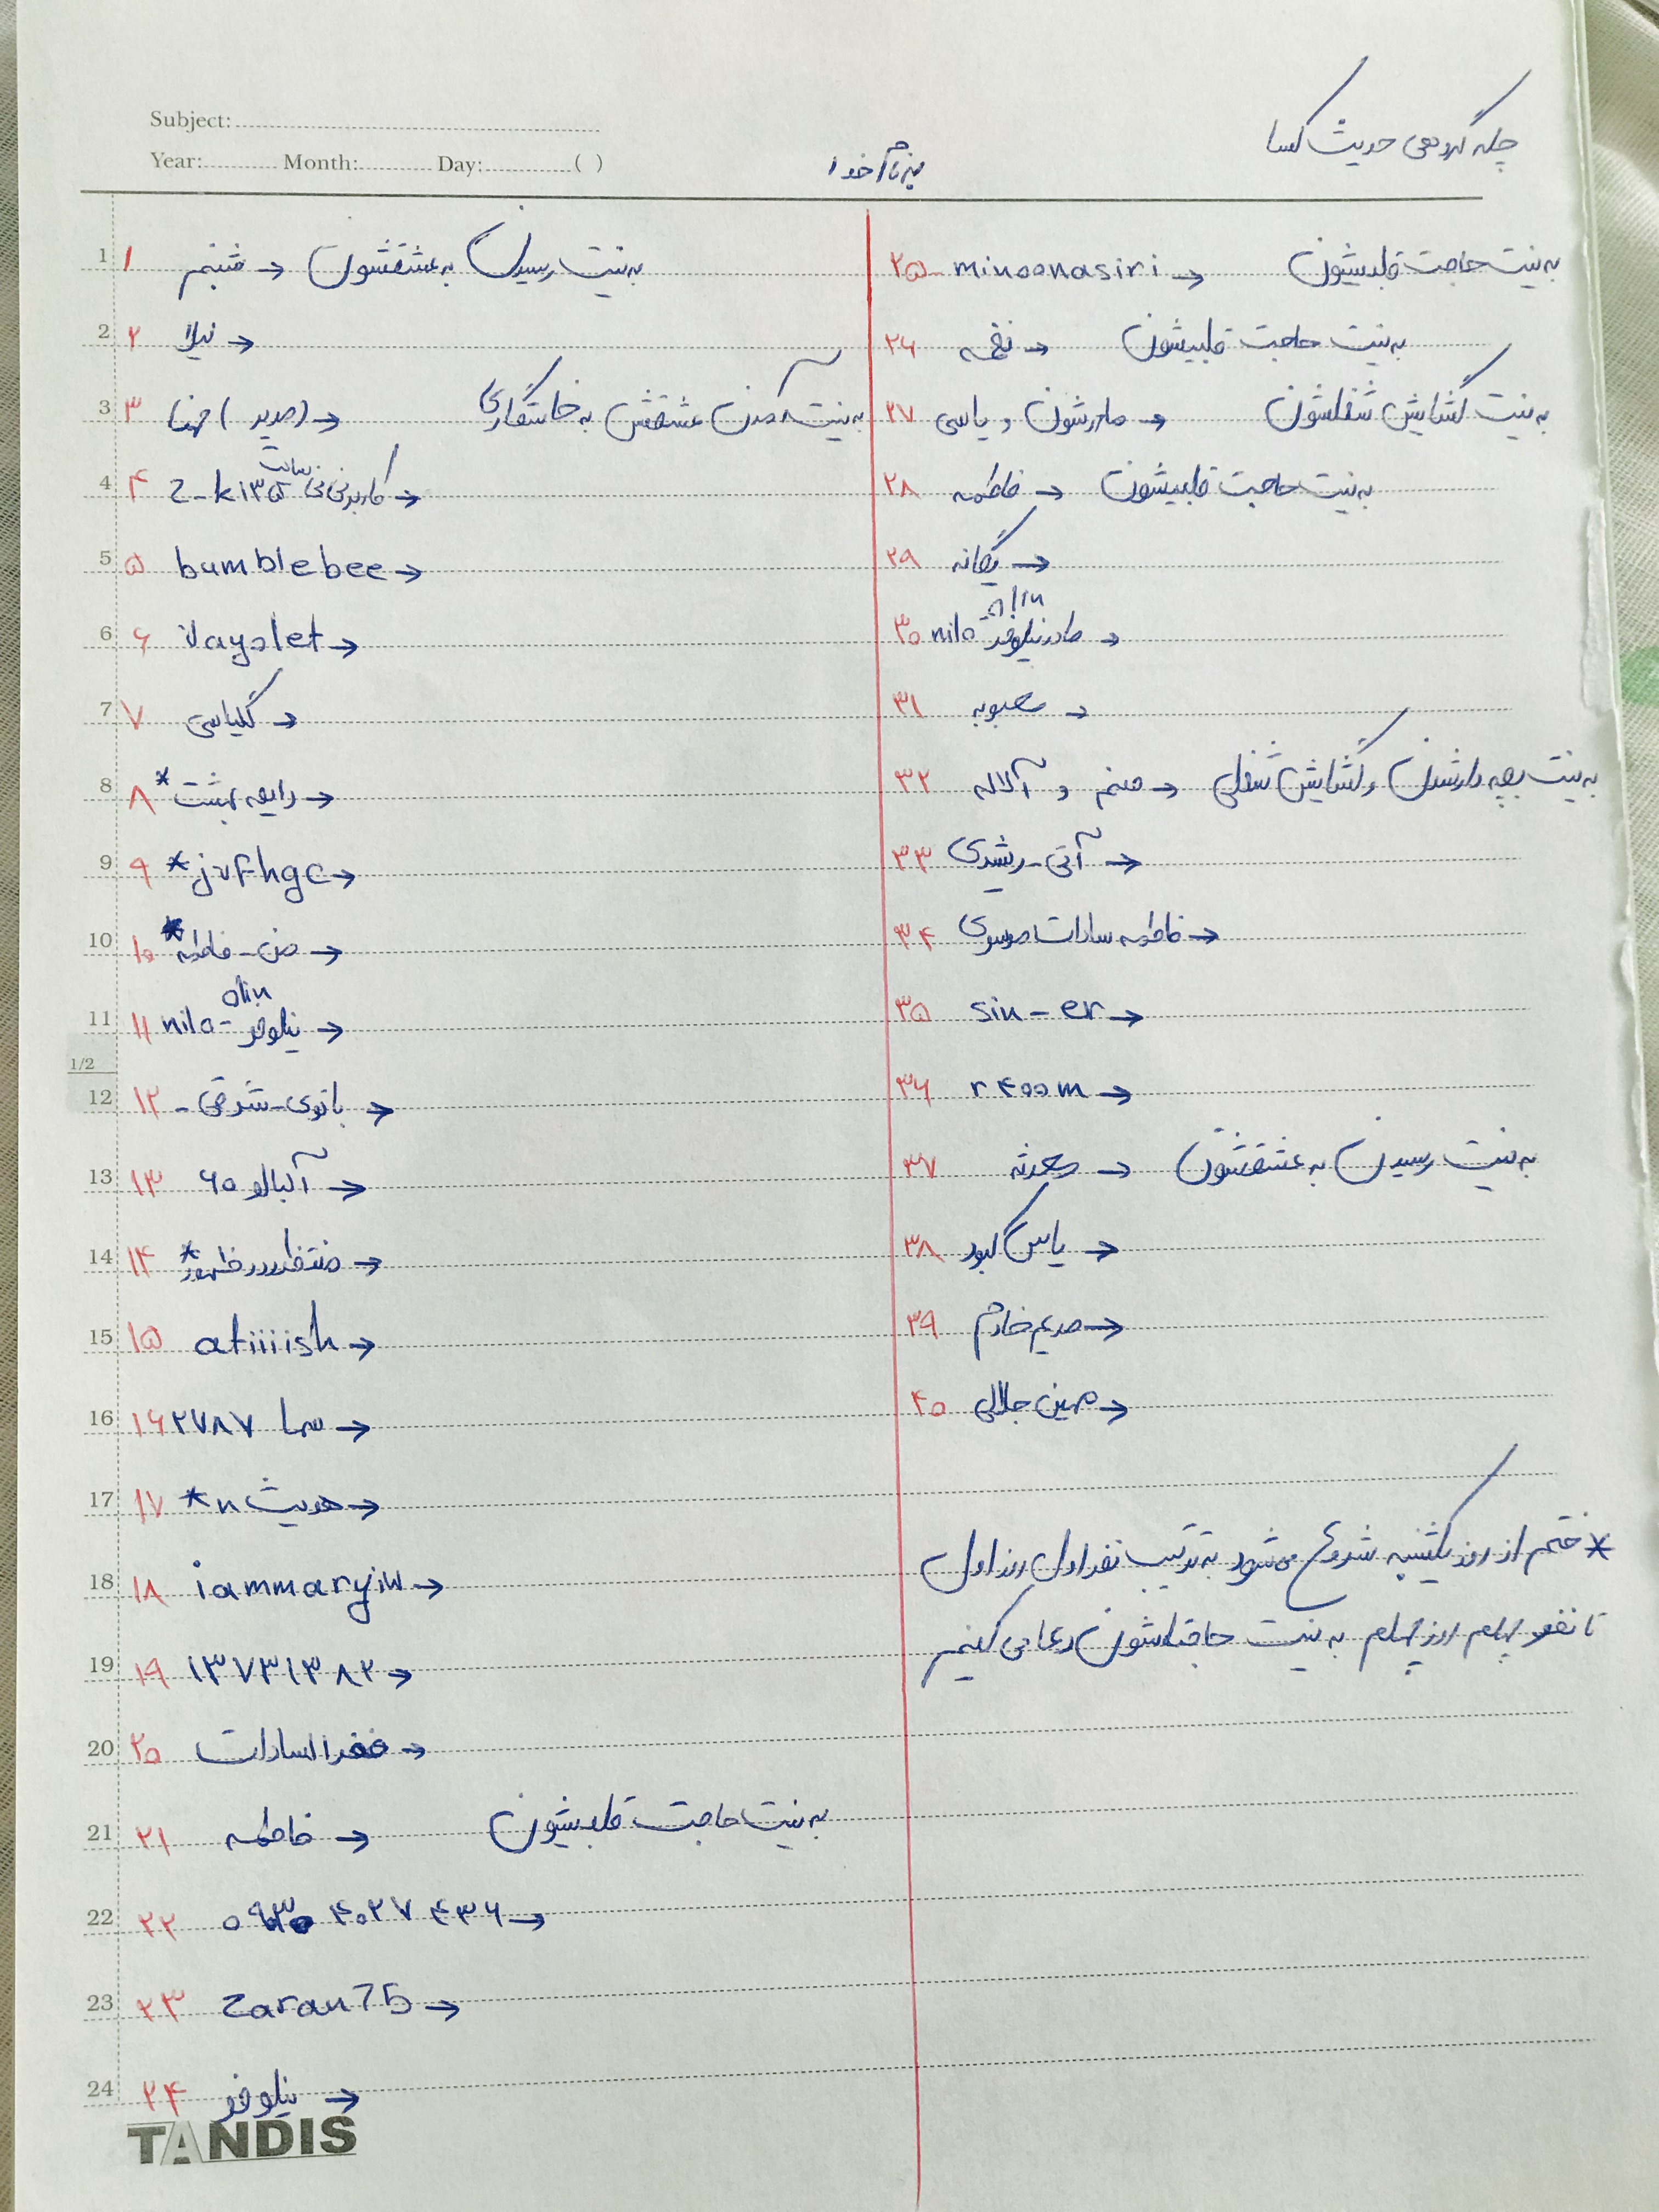 Subject:
Year: Month: Day: ( )
چله گروهی حدیث کسا
بنام خدا
1 ۱ شبنم → به نیت رسیدن به عشقشون
2 ۲ نیلا →
3 ۳ (مدیر) → به نیت آمدن عشقش به خاستگاری
4 ۴ z-ki۳۵ کاربر نی نی سایت →
5 ۵ bumblebee →
6 ۶ Vayolet →
7 ۷ گلیاس →
8 ۸ رایحه بهشت* →
9 ۹ *jvfhgc →
10 ۱۰ من-فاطمه* →
11 ۱۱ nilo- نیلوفر olin →
1/2
12 ۱۲ بانوی-شرقی- →
13 ۱۳ آلبالو ۶۰ →
14 ۱۴ →
15 ۱۵ atiiiish →
16 ۱۶ سما ۲۷۸۷ →
17 ۱۷ حدیث n* →
18 ۱۸ iammaryiw →
19 ۱۹ ۱۳۷۳۱۳۸۲ →
20 ۲۰ فخرالسادات →
21 ۲۱ فاطمه → به نیت حاجت قلبیشون
22 ۲۲ ۰۹۳۰ ۴۰۲۷ ۴۳۶ →
23 ۲۳ zaran75 →
24 ۲۴ نیلوفر →
۲۵- minoonasiri → به نیت حاجت قلبیشون
۲۶ نغمه → به نیت حاجت قلبیشون
۲۷ مادرشون و یاسی → به نیت گشایش شغلشون
۲۸ فاطمه → به نیت حاجت قلبیشون
۲۹ یگانه →
۳۰ nilo- مادر نیلوفر →
۳۱ محبوبه →
۳۲ صنم و آلاله → به نیت بچه دار شدن و گشایش شغلی
۳۳ آتی-رشیدی →
۳۴ فاطمه سادات موسوی →
۳۵ sin-er →
۳۶ r۴۰۰m →
۳۷ محدثه → به نیت رسیدن به عشقشون
۳۸ یاس کبود →
۳۹ مریم خادم →
۴۰ مهین جلالی →
* ختم از روز یکشنبه شروع می شود به ترتیب نفر اول روز اول
تا نفر چهلم روز چهلم به نیت حاجتاشون دعا می کنیم
TANDIS